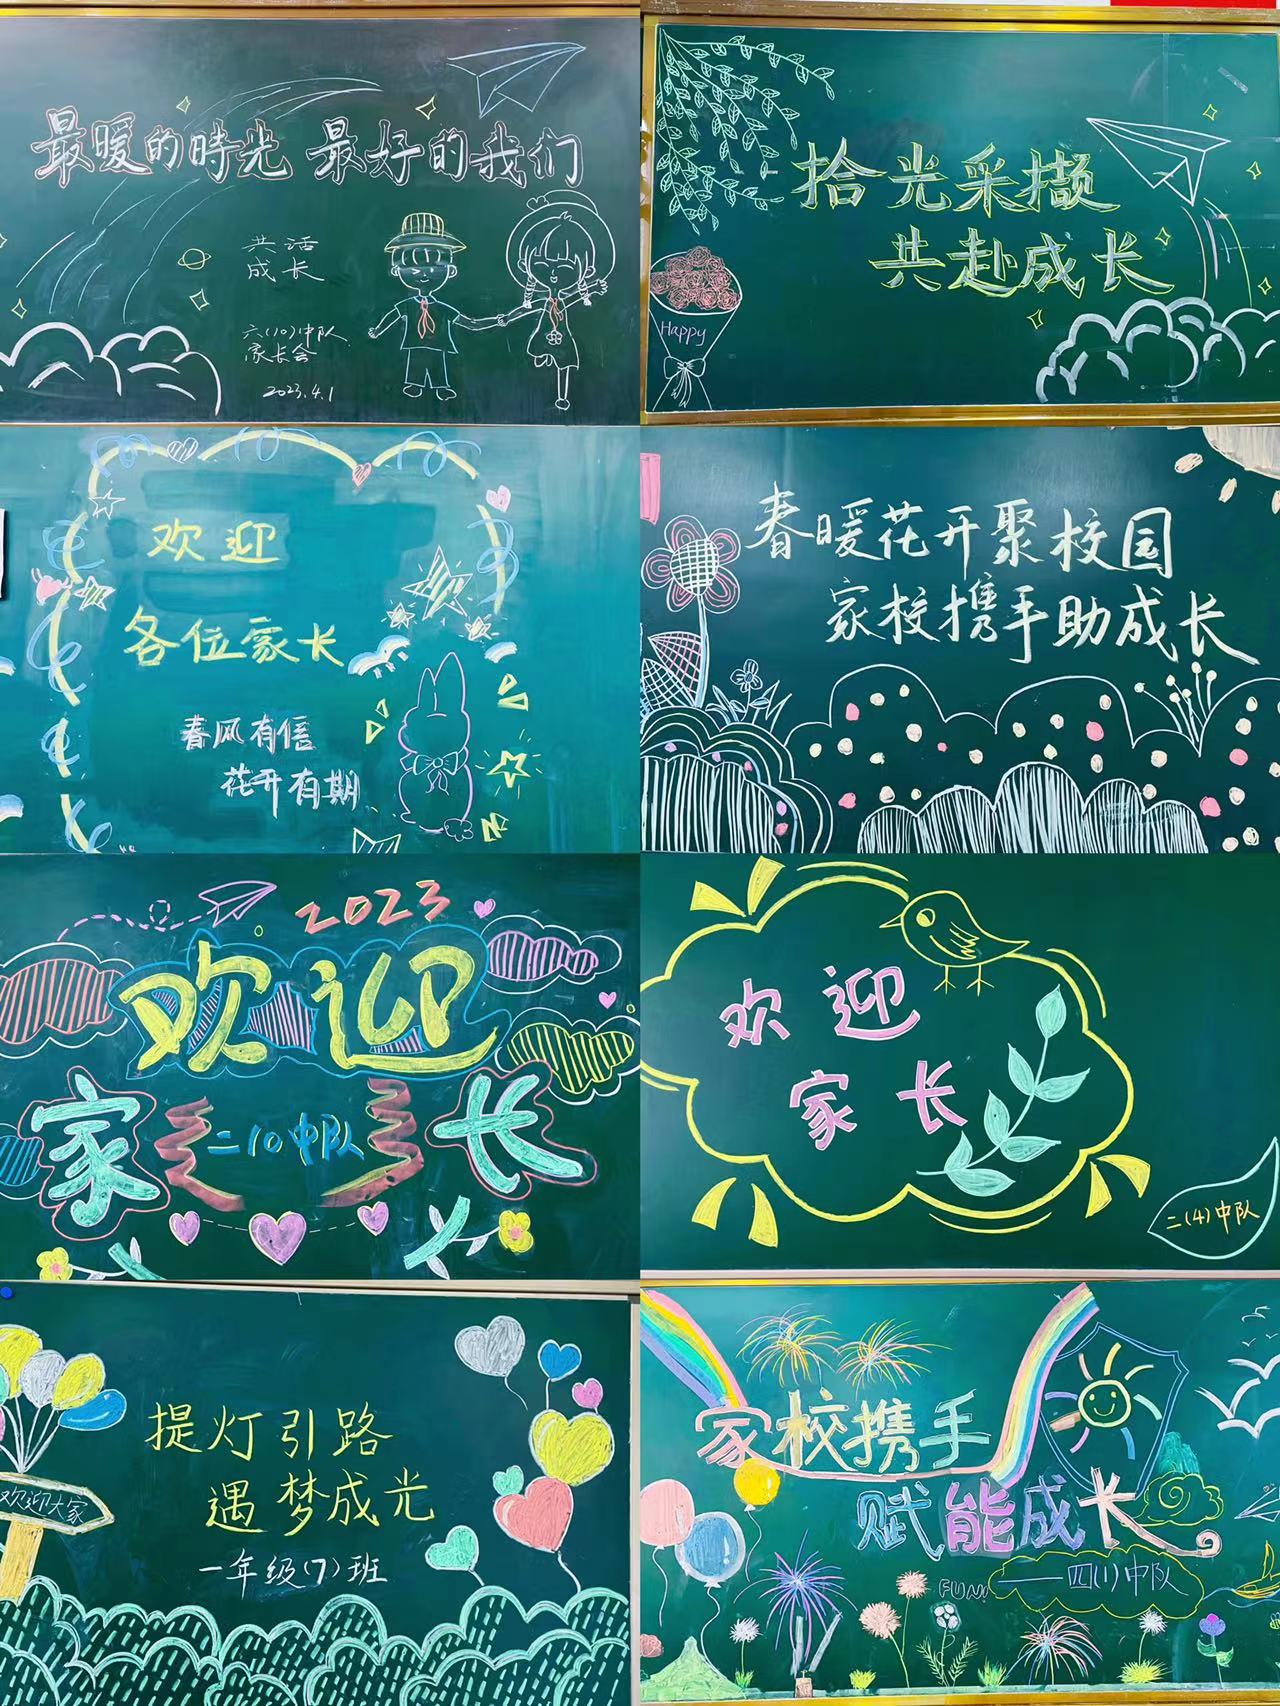 最暖的時光 最好的我们
共话
成长
六(10)中队
家长会
2023.4.1
拾光采撷
共赴成长
Happy
欢迎
各位家长
春风有信
花开有期
春暖花开聚校园
家校携手助成长
2023
欢迎
家长
二10中队
欢迎
家长
二(4)中队
提灯引路
遇梦成光
欢迎大家
一年级(7)班
家校携手
赋能成长
FUN!
——四(1)中队